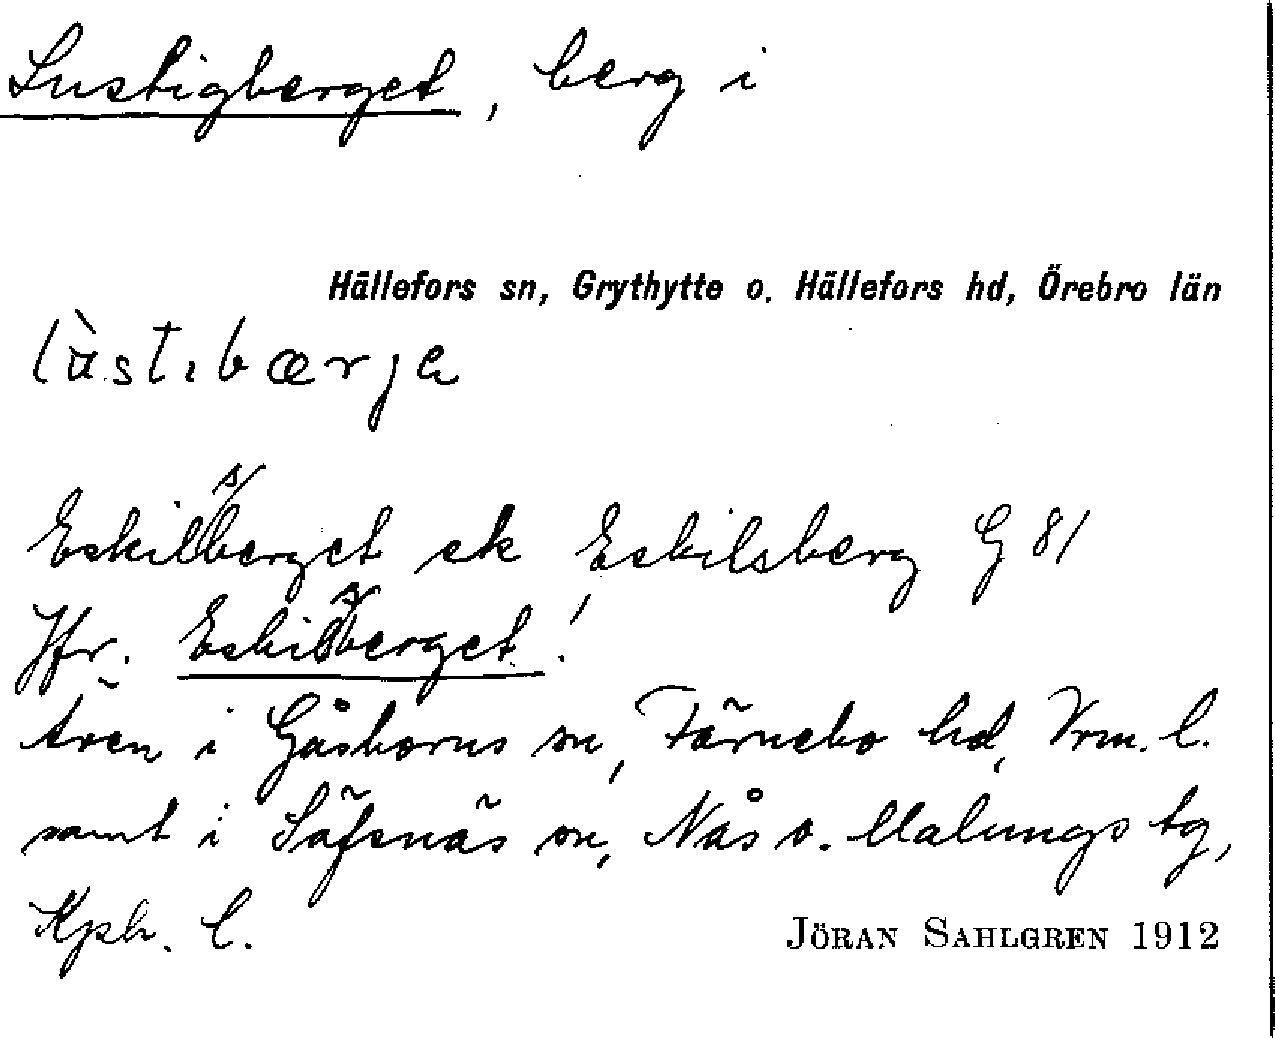 Lustigberget, berg i
Hällefors sn, Grythytte o. Hällefors hd, Örebro län
lùstıbærjɐ
Eskilsberget ek Eskilsberg G 81
Jfr. Eskilsberget!
även i Gåsborns sn, Färnebo hd, Vrm. l.
samt i Säfsnäs sn, Nås o. Malungs tg,
Kpb. l.
JÖRAN SAHLGREN 1912